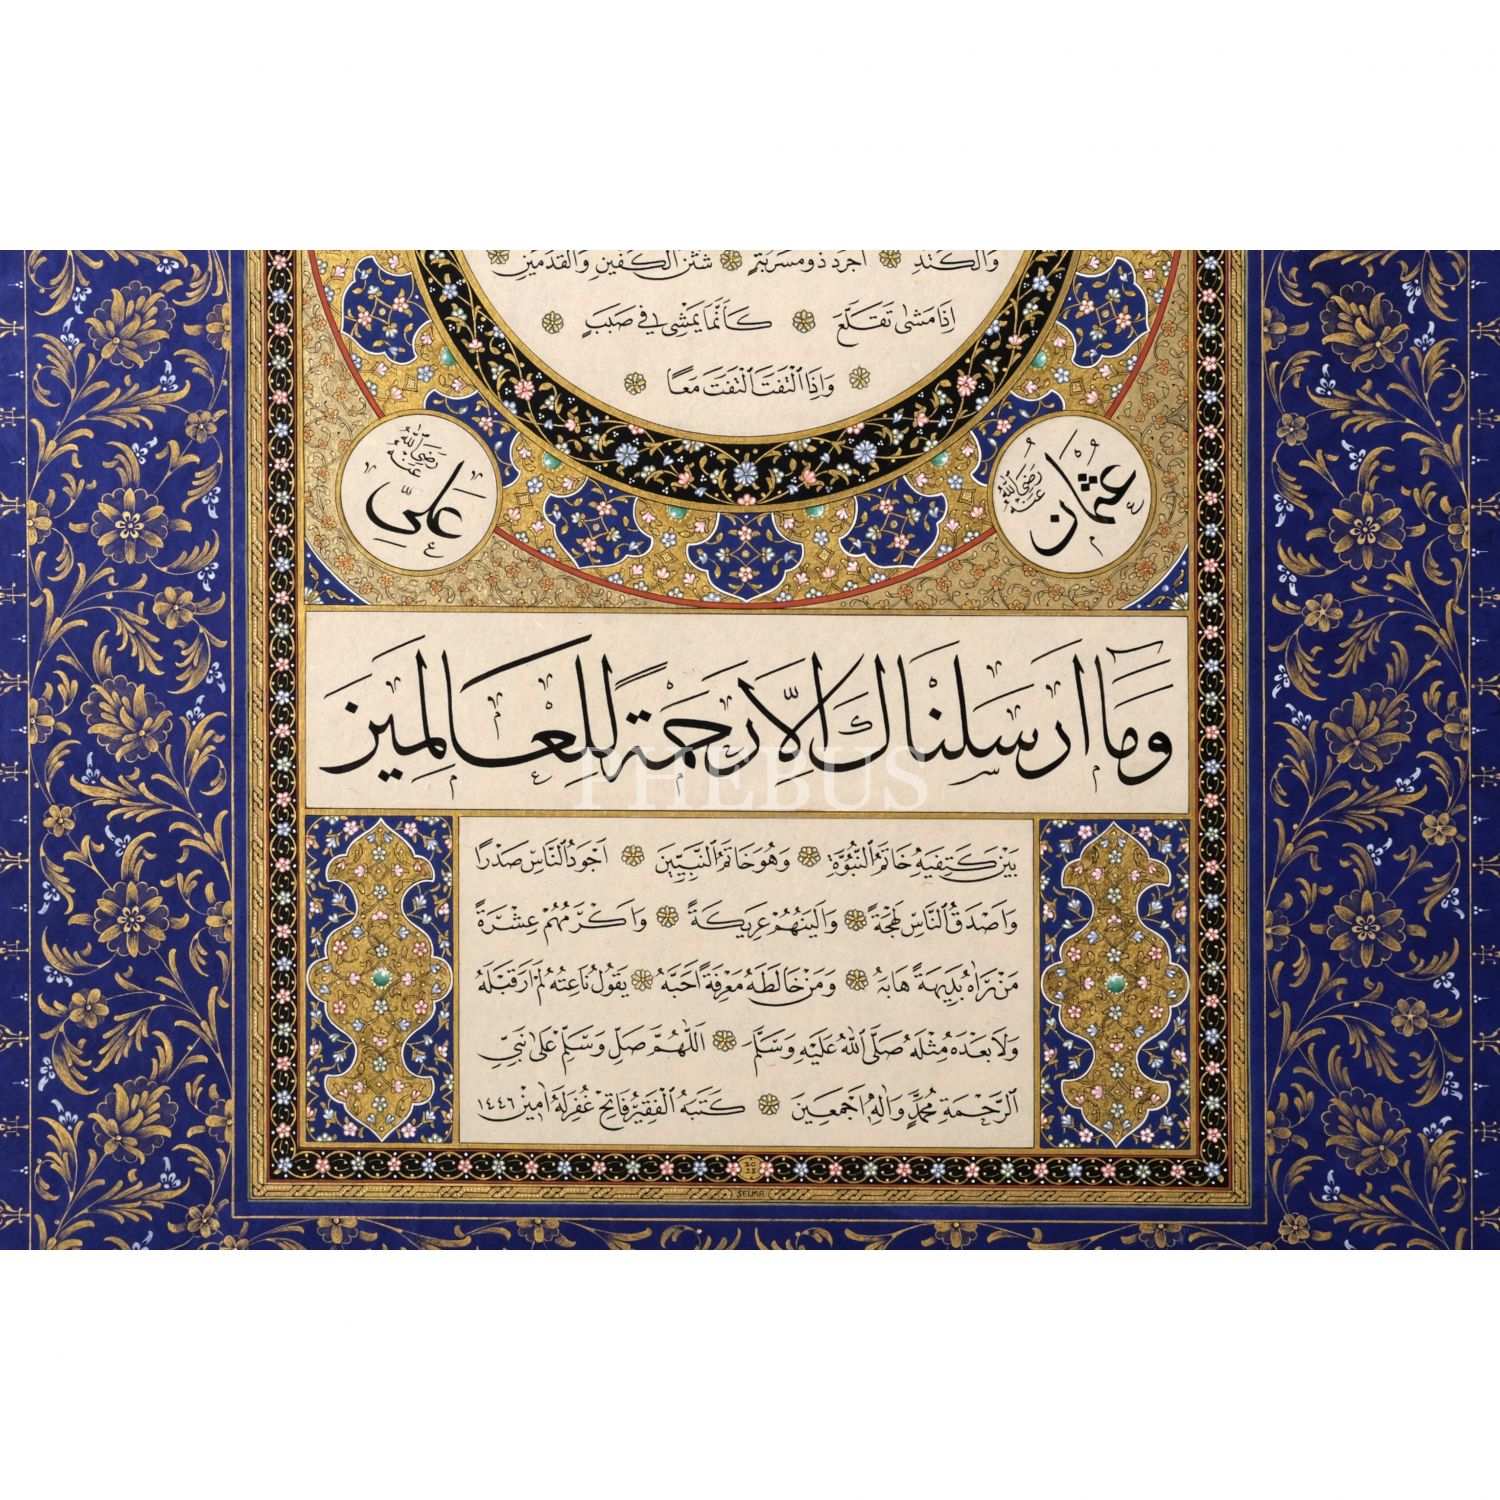 وَالْكَتَدِ أَجْرَدُ ذُو مَسْرُبَةٍ شَثْنُ الْكَفَّيْنِ وَالْقَدَمَيْنِ
إِذَا مَشَى تَقَلَّعَ كَأَنَّمَا يَمْشِي فِي صَبَبٍ
وَإِذَا الْتَفَتَ الْتَفَتَ مَعًا
عُثْمَان رَضِيَ اللهُ عَنْهُ
عَلِيّ رَضِيَ اللهُ عَنْهُ
وَمَا أَرْسَلْنَاكَ إِلَّا رَحْمَةً لِلْعَالَمِينَ
PHEBUS
بَيْنَ كَتِفَيْهِ خَاتَمُ النُّبُوَّةِ وَهُوَ خَاتَمُ النَّبِيِّينَ أَجْوَدُ النَّاسِ صَدْرًا
وَأَصْدَقُ النَّاسِ لَهْجَةً وَأَلْيَنُهُمْ عَرِيكَةً وَأَكْرَمُهُمْ عِشْرَةً
مَنْ رَآهُ بَدِيهَةً هَابَهُ وَمَنْ خَالَطَهُ مَعْرِفَةً أَحَبَّهُ يَقُولُ نَاعِتُهُ لَمْ أَرَ قَبْلَهُ
وَلَا بَعْدَهُ مِثْلَهُ صَلَّى اللهُ عَلَيْهِ وَسَلَّمَ اَللّٰهُمَّ صَلِّ وَسَلِّمْ عَلَى نَبِيِّ
الرَّحْمَةِ مُحَمَّدٍ وَآلِهِ أَجْمَعِينَ كَتَبَهُ الْفَقِيرُ فَاتِحْ غُفِرَ لَهُ آمِينْ ١٤٤٦
20
25
SELMA